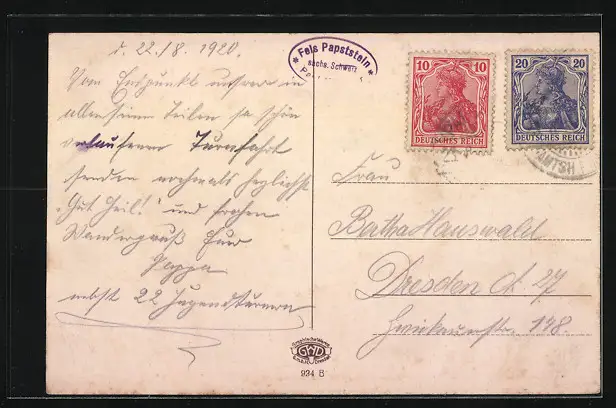 d. 22./8. 1920.
Vom Endpunkt unserer in
allen seinen Teilen so schön
verlaufenen Turnfahrt
senden nochmals herzlichst
"Gut Heil!" und frohen
Wandergruß Euer
Pappa
nebst 22 Jugendturnern
* Fels Papststein *
sächs. Schweiz
10 10
DEUTSCHES REICH
20 20
DEUTSCHES REICH
Frau
Bertha Hauswald
Dresden A. 27
Zwickauerstr. 148.
GWD
934 B